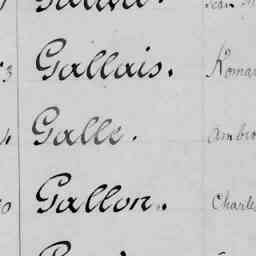 Jean
3 Gallais. Romai
Galle. Ambro
0 Gallon. Charle